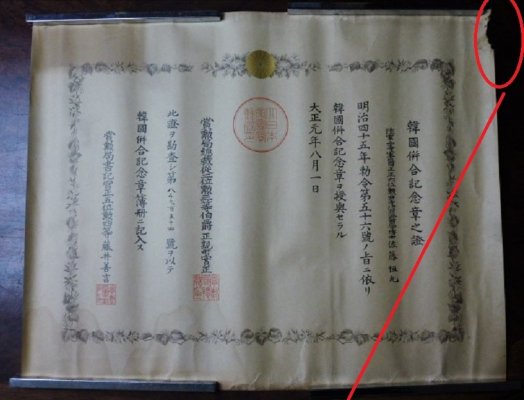 韓國併合記念章之證
明治四十五年勅令第五十六號ノ旨ニ依リ
韓國併合記念章ヲ授與セラル
大正元年八月一日
賞勲局總裁從二位勲一等伯爵正親町實正
此證ヲ勘査シ第 號ヲ以テ
韓國併合記念章簿冊ニ記入ス
賞勲局書記官正五位勲四等藤井善言